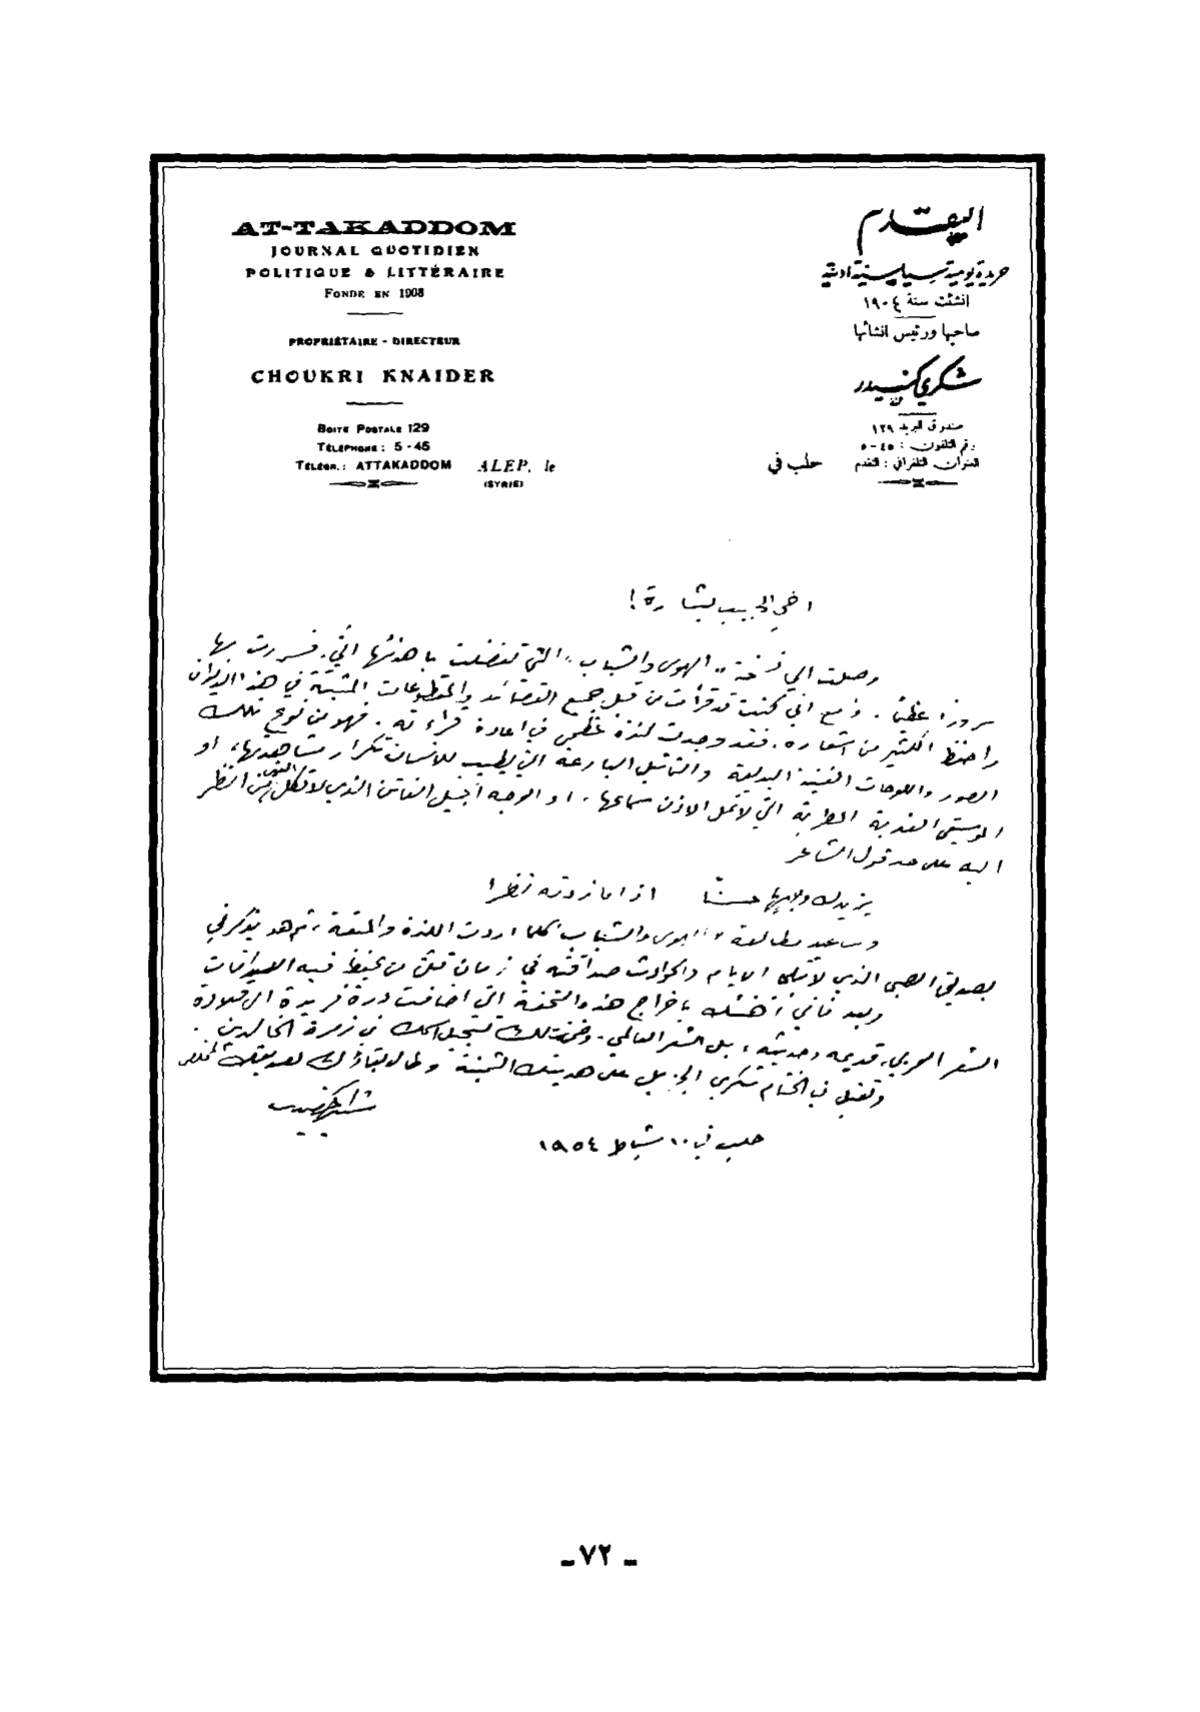 AT-TAKADDOM
JOURNAL QUOTIDIEN
POLITIQUE & LITTÉRAIRE
FONDE EN 1908
PROPRIÉTAIRE - DIRECTEUR
CHOUKRI KNAIDER
BOITE POSTALE 129
TÉLÉPHONE: 5-45
TÉLÉGR.: ATTAKADDOM
ALEP, le
(SYRIE)
التقدم
جريدة يومية سياسية ادبية
انشئت سنة ١٩٠٤
صاحبها ورئيس انشائها
شكري كنيدر
صندوق البريد ١٢٩
رقم التلفون: ٤٥-٥
العنوان التلغرافي: التقدم
حلب في
اخي الحبيب بشارة!
وصلت الي نسخة «الهوى والشباب» التي تفضلت باهدائها الي. فسررت بها
سرورا عظيما. ومع اني كنت قد قرأت من قبل جميع القصائد والمقطوعات المثبتة في هذا الديوان
واحفظ الكثير من اشعاره. فقد وجدت لذة عظمى في اعادة قراءته. فهو من نوع تلك
الصور واللوحات الفنية البديعة والتماثيل البارعة التي يطيب للانسان تكرار مشاهدتها، او
الموسيقى العذبة المطربة التي لا تمل الاذن سماعها، او الوجه الجميل الفاتن الذي لا تكل العين من النظر
اليه على حد قول الشاعر
يزيدك وجهها حسنا اذا ما زدته نظرا
وساعيد مطالعة «الهوى والشباب» كلما اردت اللذة والمتعة، ثم هو يذكرني
بصديقي الذي لا الايام والحوادث صداقته في زمان من يحفظ فيه الصداقات
وبعد فاني اهنئك باخراج هذه التحفة التي اضافت درة فريدة الى قلادة
الشعر العربي، قديمه وحديثه، بل الشعر العالمي. تسجيل اسمك في زمرة الخالدين.
وتقبل في الختام شكري الجزيل على هديتك الثمينة وطال بقاؤك لصديقك المخلص
شكري كنيدر
حلب في ١٠ شباط ١٩٥٤
- ٧٢ -